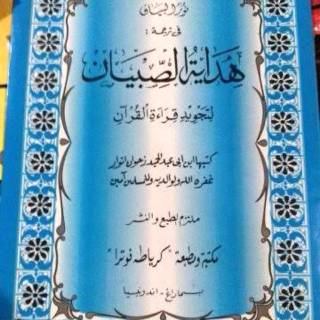 نور البيان
في ترجمة :
هداية الصبيان
لتجويد قراءة القرآن
كتبها ابن ابى عبد الحميد زهوان انوار
غفر الله له ولوالديه وللمسلمين آمين
ملتزم لطبع والنشر
مكتبة ومطبعة "كرياطه فوترا"
سماراغ - اندونيسيا